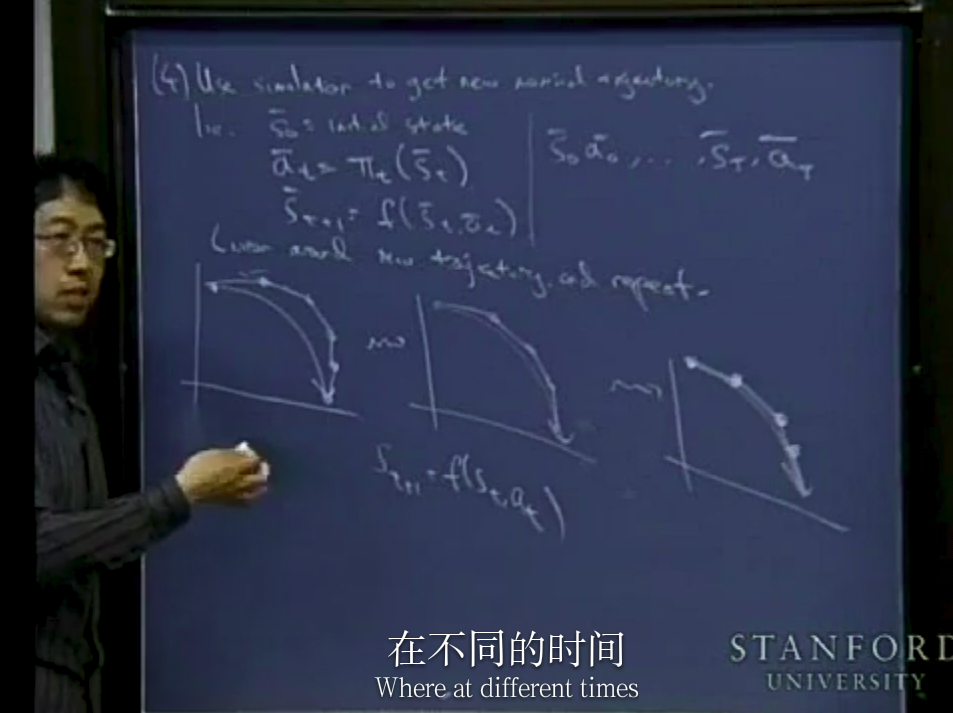 (4) Use simulator to get new nominal trajectory.
I.e. s̄₀ = initial state
āₜ = πₜ(s̄ₜ)
s̄ₜ₊₁ = f(s̄ₜ, āₜ)
s̄₀ ā₀, ..., s̄_T, ā_T
new trajectory, and repeat.
sₜ₊₁ = f(sₜ, aₜ)
在不同的时间
Where at different times
STANFORD
UNIVERSITY